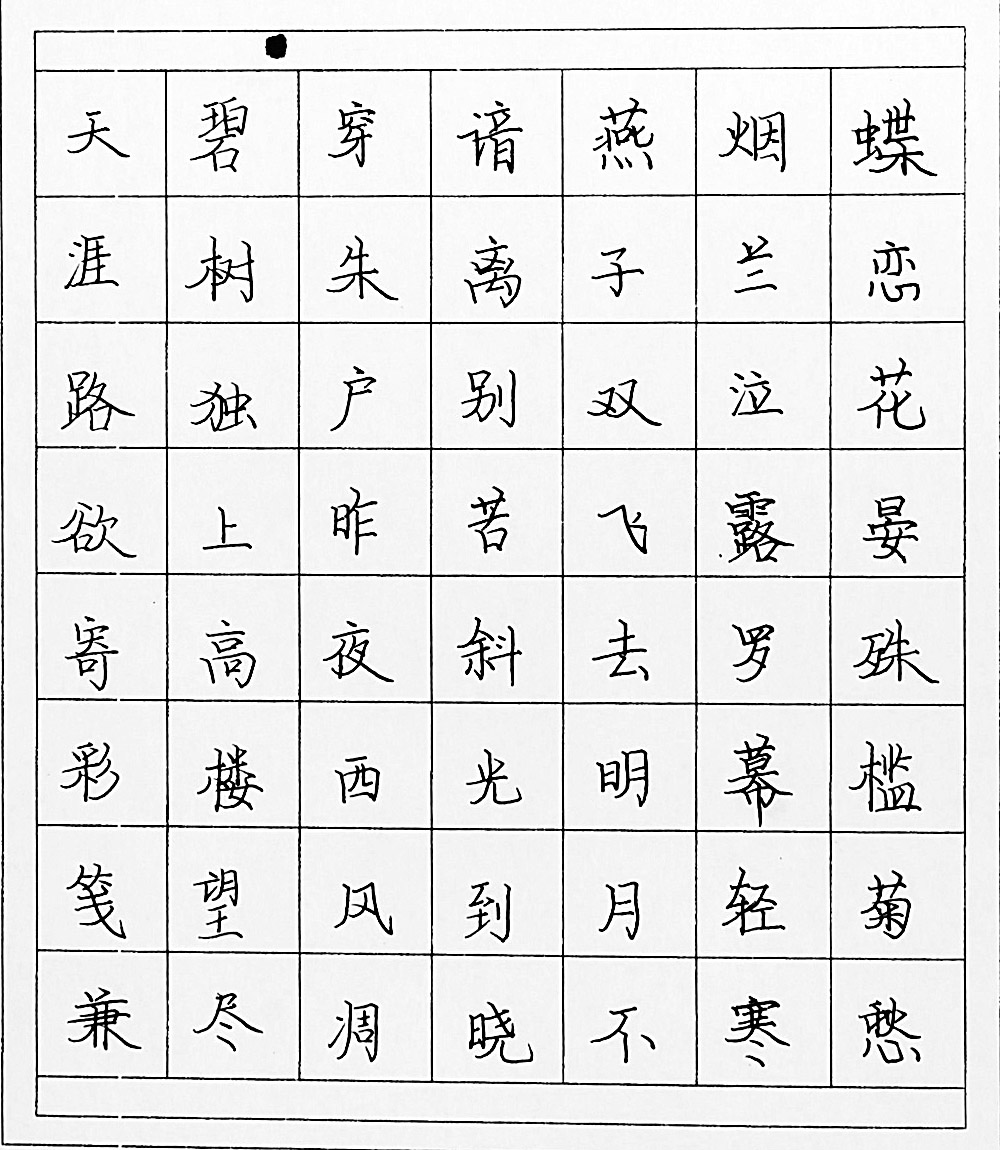 蝶恋花晏殊槛菊愁
烟兰泣露罗幕轻寒
燕子双飞去明月不
谙离别苦斜光到晓
穿朱户昨夜西风凋
碧树独上高楼望尽
天涯路欲寄彩笺兼